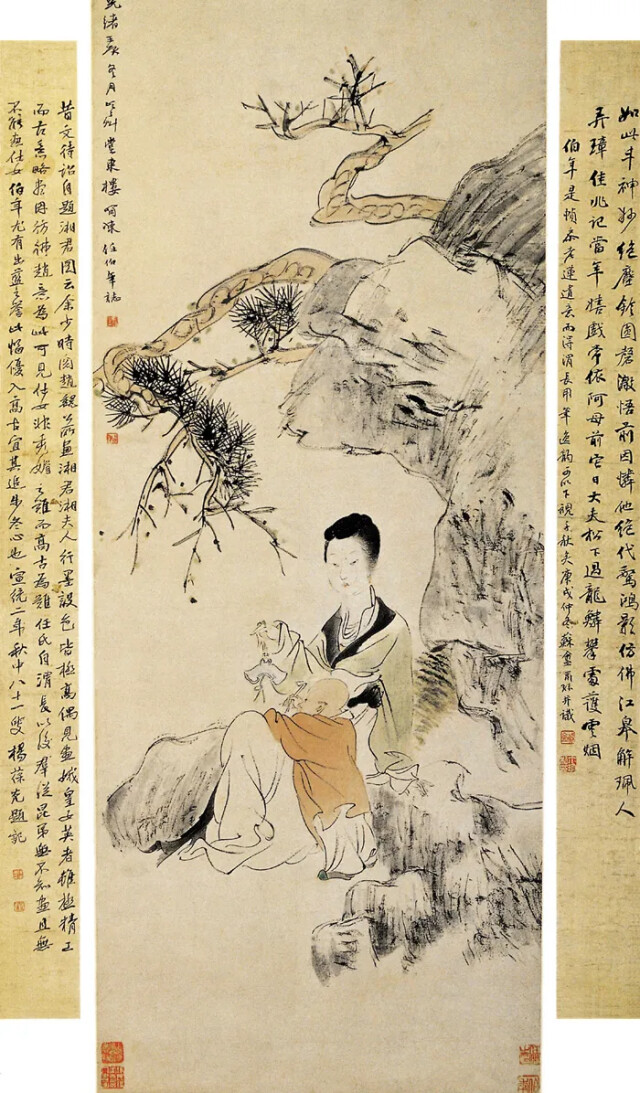 如此丰神妙絕塵鈴圓磬澈悟前因憐他絕代驚鴻影仿佛江皋解珮人
弄璋佳兆記當年嬉戲常依阿母前它日大夫松下過龍鱗攀處護雲烟
伯年是幀參老蓮遺意而得渭長用筆逸韵可以下視千秋矣庚戌仲冬蘇盦并識
緒冬月東樓任伯年
昔文待詔自題湘君圖云余少時閱趙魏公所畫湘君湘夫人行墨設色皆極高偶見畫娥皇女英者雖極精工
而古意略盡因仿彿趙意為此可見仕女非秀媚之難而高古為難任氏自渭長以後羣從昆弟無不知畫且無
不能畫仕女伯年尤有出藍之譽此幅優入高古宜其進步冬心也宣統二年秋中八十一叟楊葆光題記